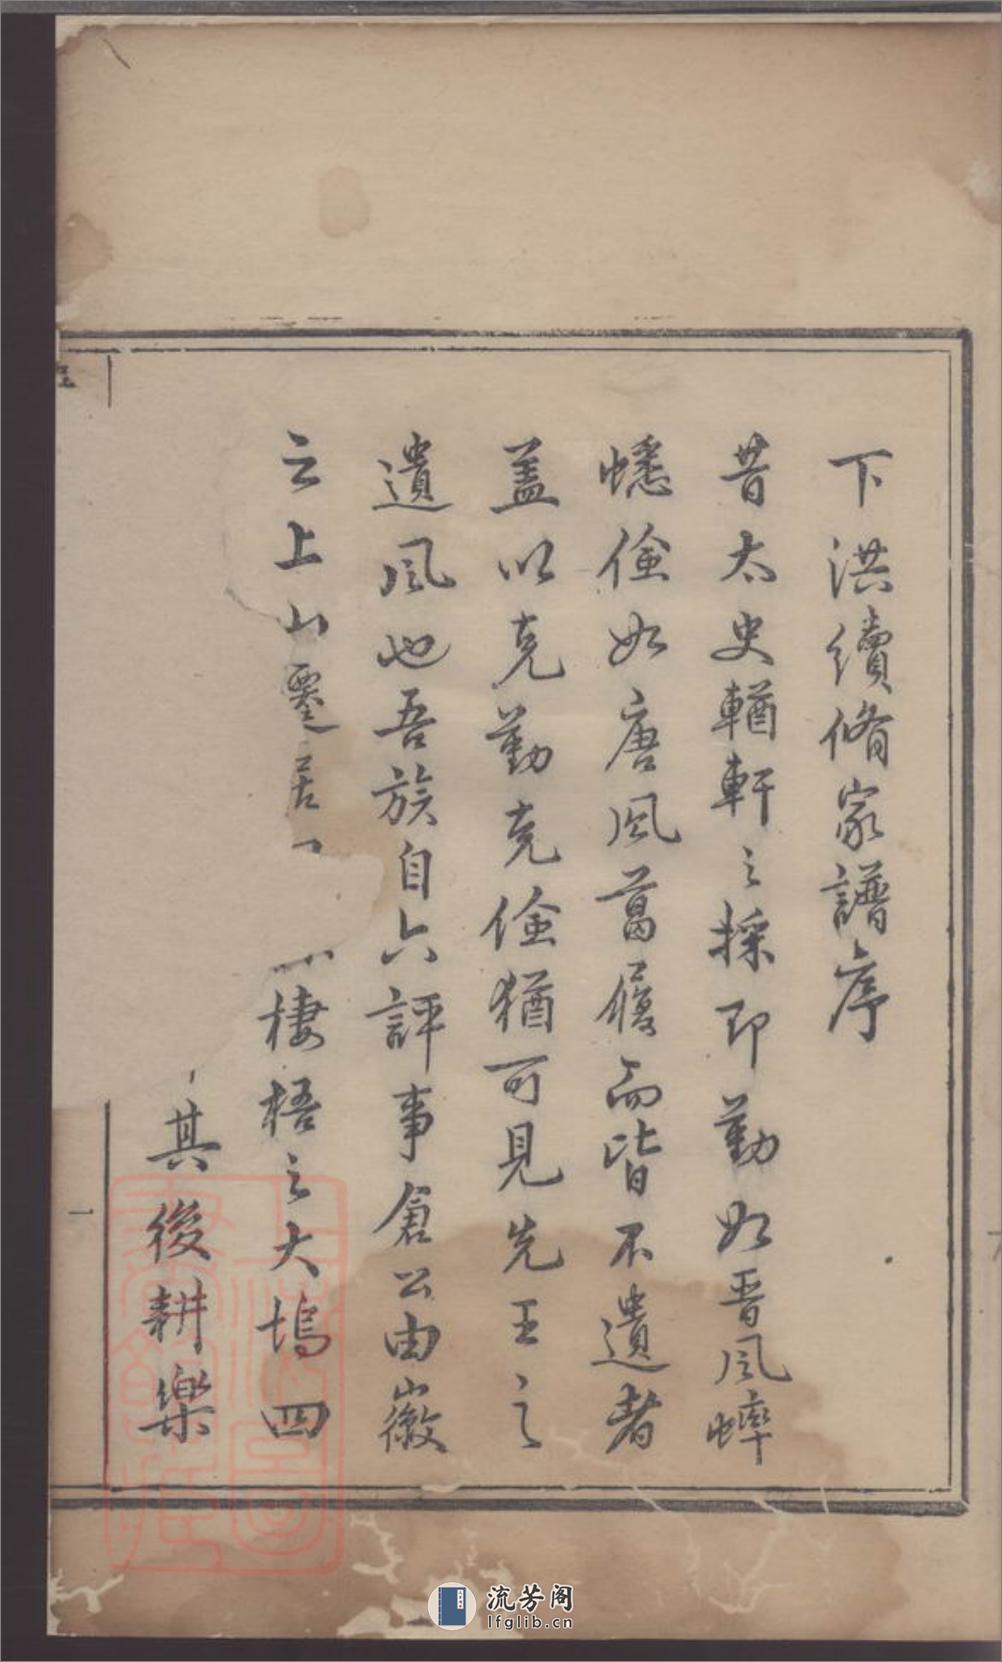 下洪續脩家譜序
昔太史輶軒之採即勤如晋風蟀
蟋儉如唐風葛屨而皆不遺者
盖以克勤克儉猶可見先王之
遺風也吾族自六評事倉公由徽
之上山遷居 棲梧之大塢四
其後耕樂
一
上海圖書館藏
流芳阁
lfglib.cn